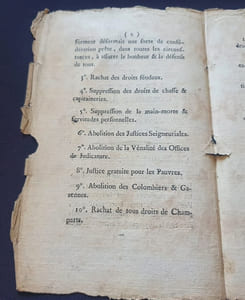 ( 2 )
forment désormais une sorte de confé-
dération prête, dans toutes les circonf-
tances, à assurer le bonheur & la défense
de tous.
3°. Rachat des droits féodaux.
4°. Suppression des droits de chasse &
capitaineries.
5°. Suppression de la main-morte &
servitudes personnelles.
6°. Abolition des Justices Seigneuriales.
7°. Abolition de la Vénalité des Offices
de Judicature.
8°. Justice gratuite pour les Pauvres.
9°. Abolition des Colombiers & Ga-
rennes.
10°. Rachat de tous droits de Cham-
parts.